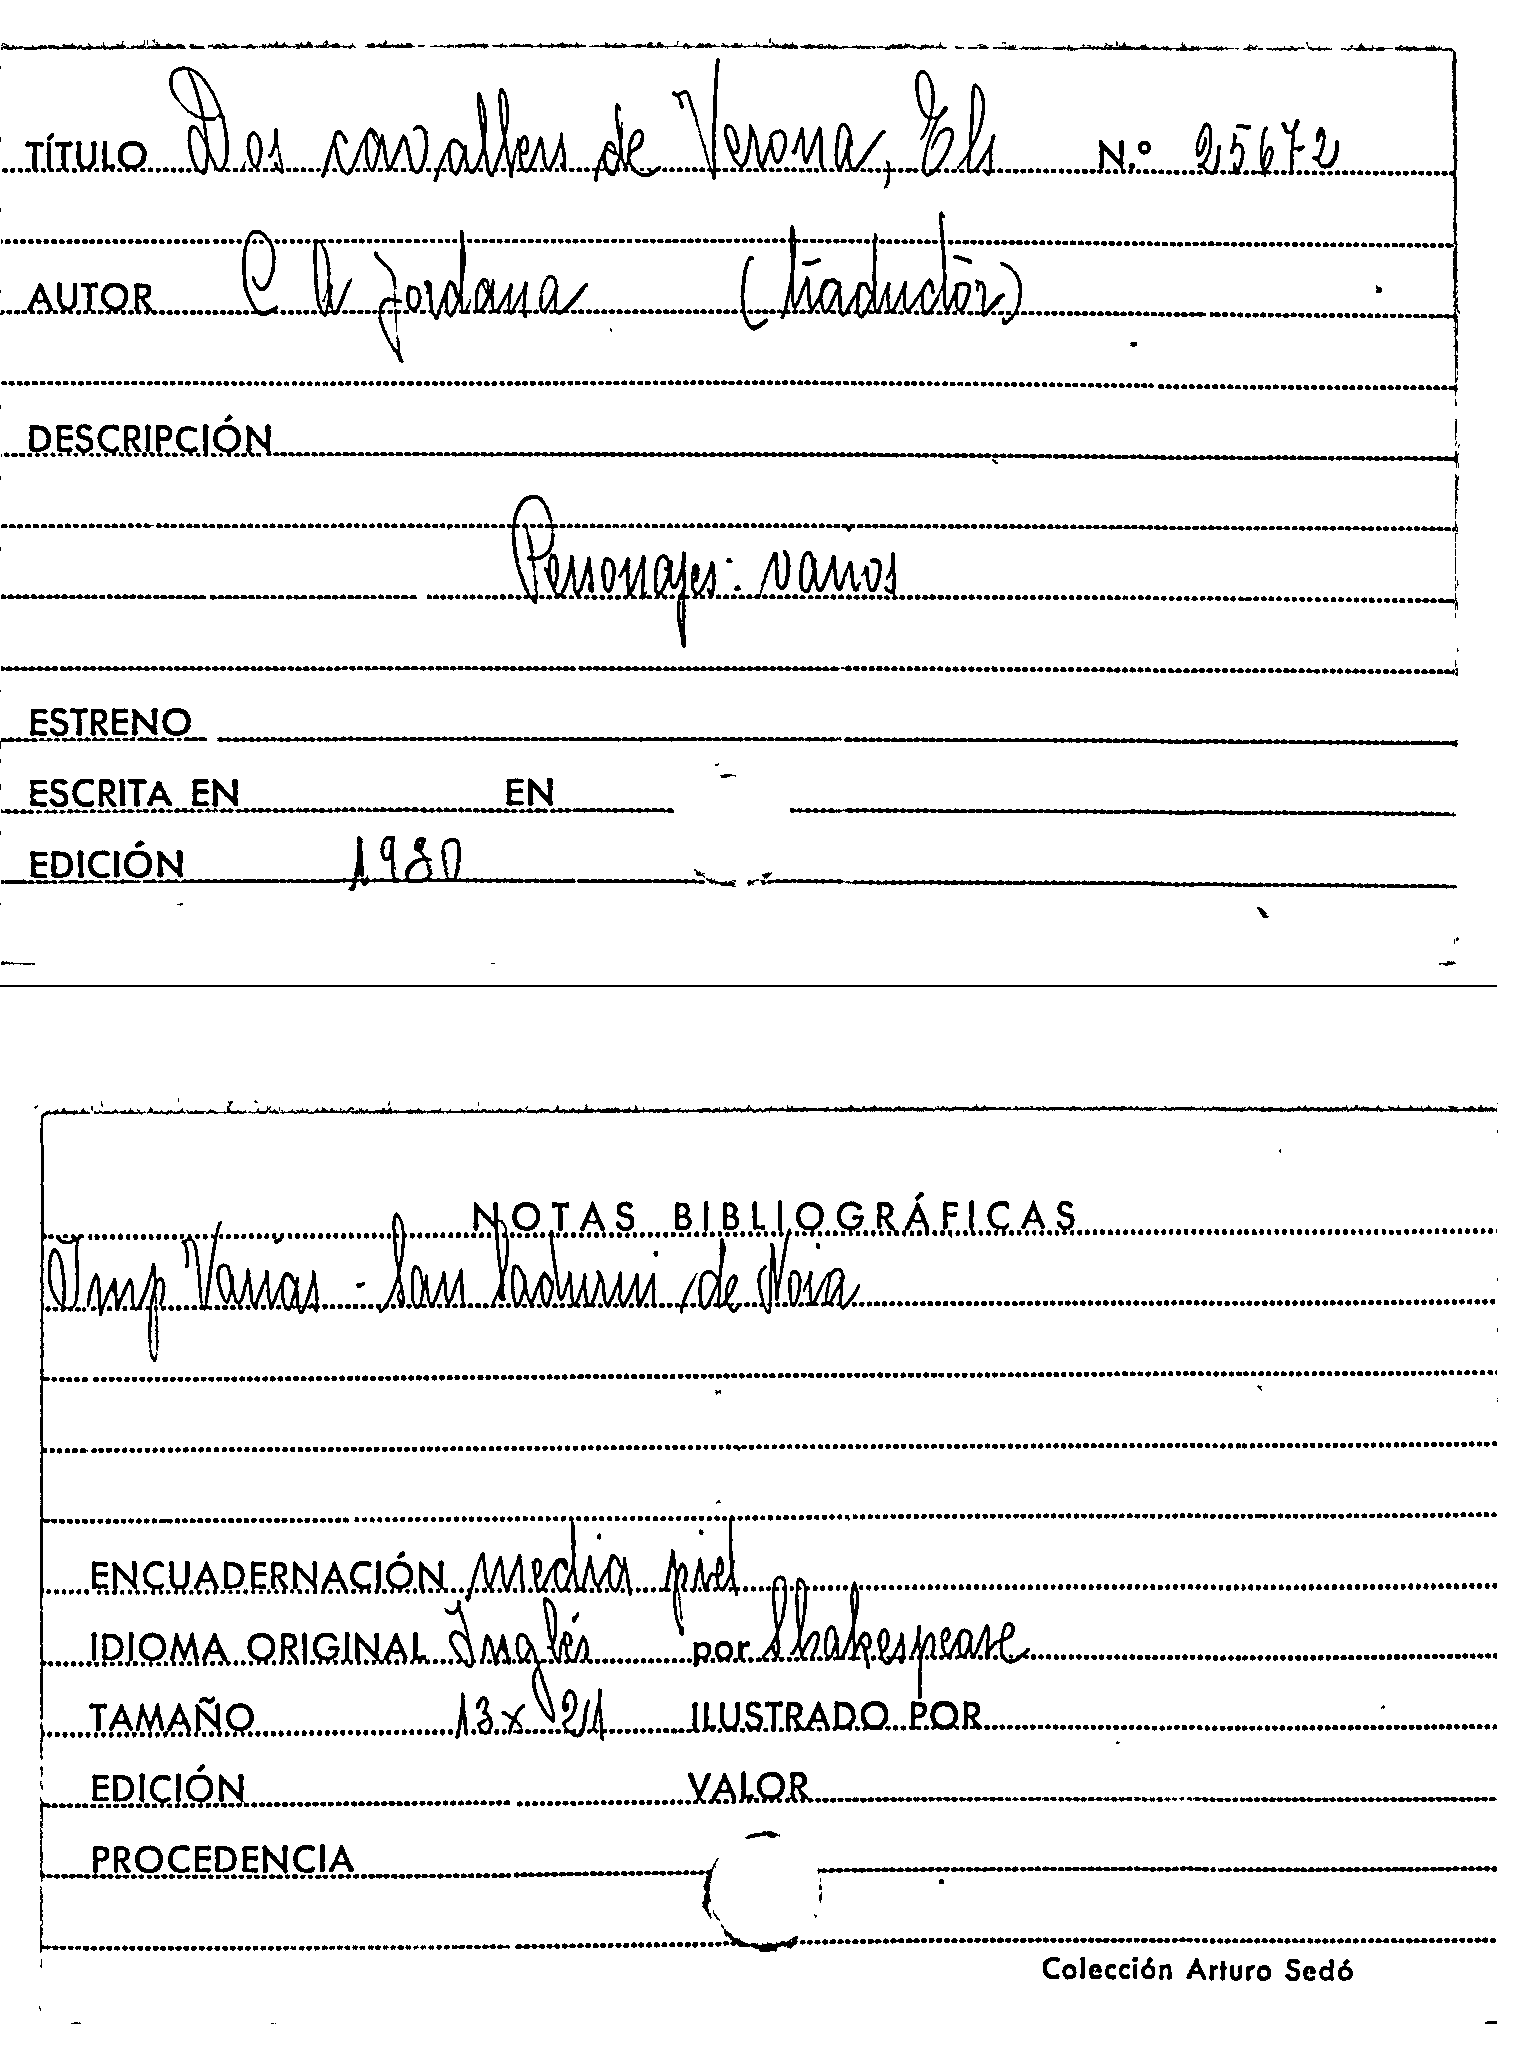 TÍTULO Dos cavallers de Verona, Els N.º 25672
AUTOR C A Jordana (traductor)
DESCRIPCIÓN
Personajes: varios
ESTRENO
ESCRITA EN EN
EDICIÓN 1930
NOTAS BIBLIOGRÁFICAS
Imp Varias - San Sadurni de Noia
ENCUADERNACIÓN media piel
IDIOMA ORIGINAL Inglés por Shakespeare
TAMAÑO 13 x 21 ILUSTRADO POR
EDICIÓN VALOR
PROCEDENCIA
Colección Arturo Sedó